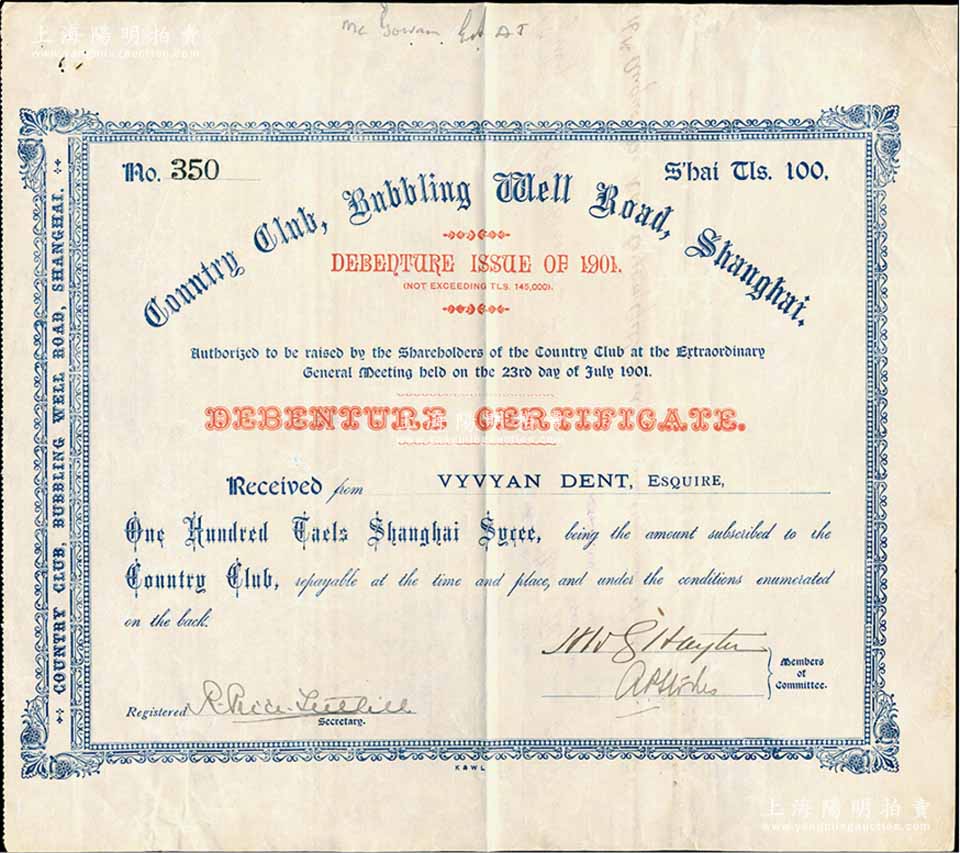 上海陽明拍賣
www.yangmingauction.com
Mc Gowan
No. 350
S'hai Tls. 100.
Country Club, Bubbling Well Road, Shanghai.
DEBENTURE ISSUE OF 1901.
(NOT EXCEEDING TLS. 145,000).
Authorized to be raised by the Shareholders of the Country Club at the Extraordinary
General Meeting held on the 23rd day of July 1901.
DEBENTURE CERTIFICATE.
上海陽明拍賣
www.yangmingauction.com
Received from VYVYAN DENT, ESQUIRE,
One Hundred Taels Shanghai Sycee, being the amount subscribed to the
Country Club, repayable at the time and place, and under the conditions enumerated
on the back.
Members
of
Committee.
Registered
Secretary.
K & W L
COUNTRY CLUB, BUBBLING WELL ROAD, SHANGHAI.
上海陽明拍賣
www.yangmingauction.com